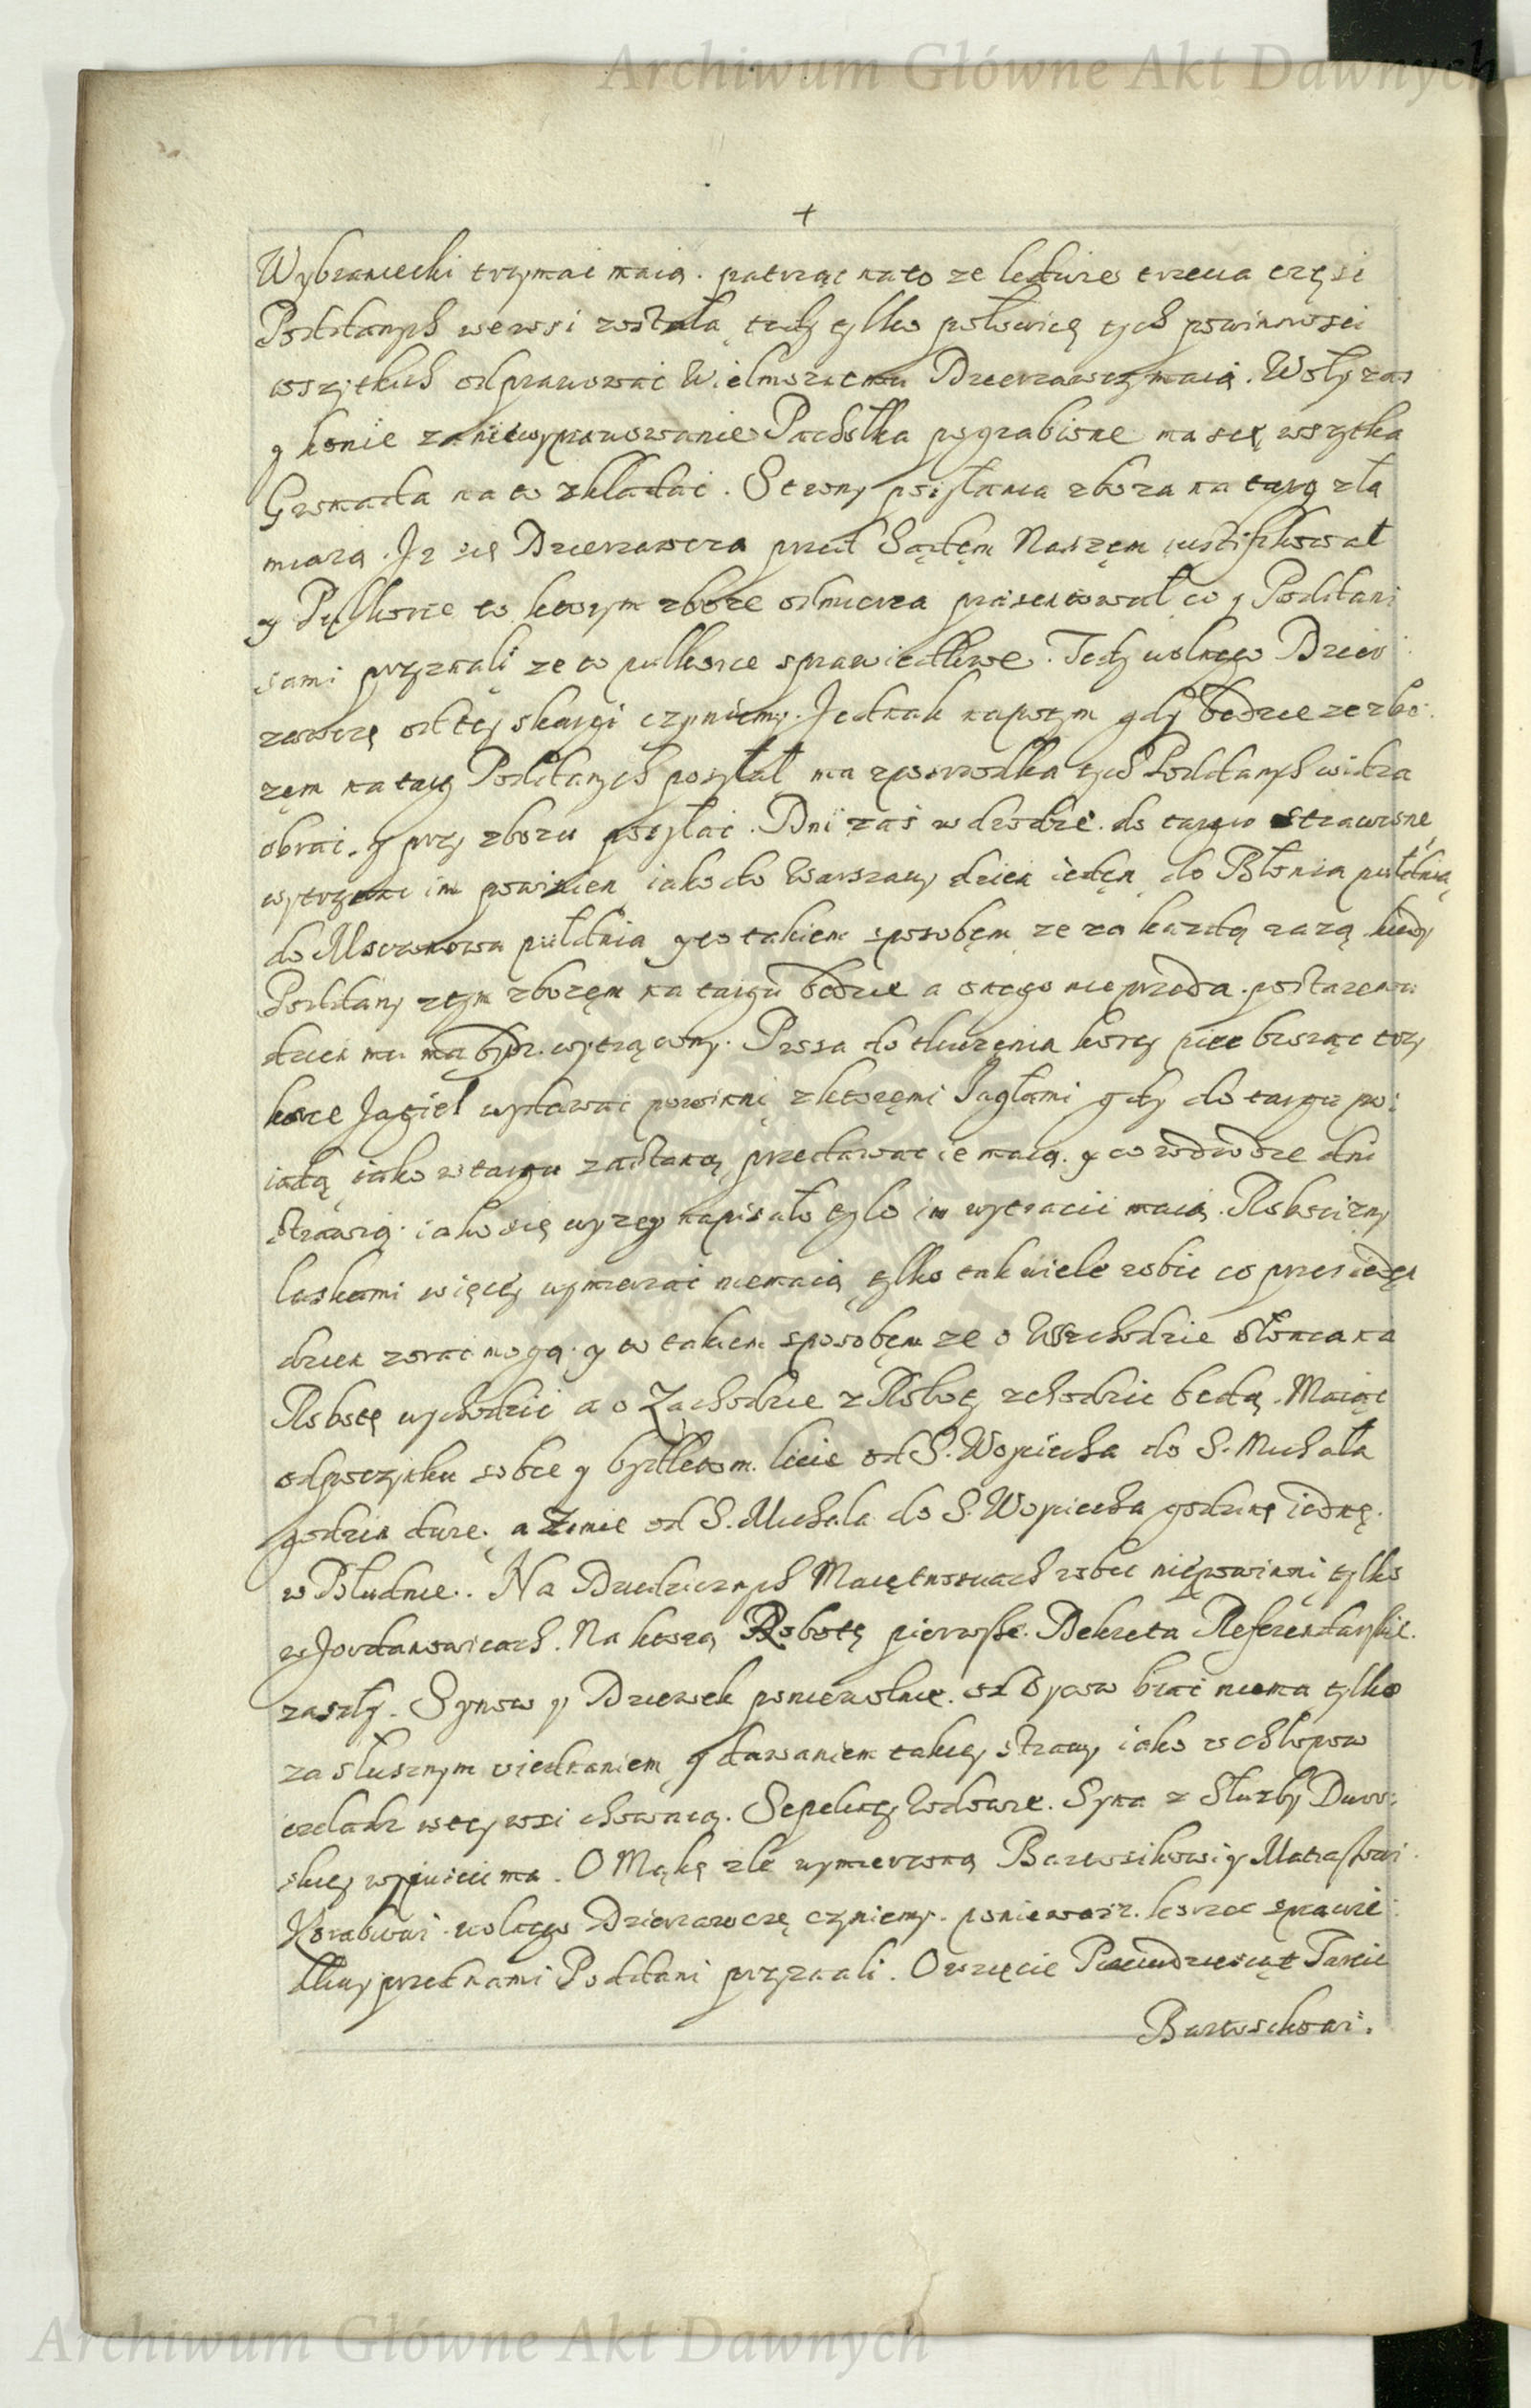 Archiwum Główne Akt Dawnych
+
Wybraniecki trzymac maią. patrząc na to ze ledwie trzecia częsc
Poddanych we wsi została, tedy tylko połowicę tych powinnosci
wszytkich odprawowac Wielmoznemu Dzierzawcy maią. Woły zas
y konie za niewyprawowanie Pachołka pograbione ma się wszytka
Gromada na to zkładac. Strony posyłania zboza na targ złą
miarą. Iz się Dzierzawca przed Sądęm Naszęm iustifikował
y Pułkorce w ktorym zboze odmierza praesentował co y Poddani
sami przyznali ze to pułkorce sprawiedliwe. Tedy wolnego Dzier:
zawcę od tey skargi czyniemy. Iednak napotym gdy bedzie ze zbo:
zęm na targ Poddanych posyłał ma zposrzodka tych Poddanych widza
obrac. y przy zbozu posyłac. Dni zaś w drodze. do targu strawione
wytrącac im powinien iako do Warszawy dzien iedęn do Błonia pułdnia
do Mszczonowa pułdnia y to takiem sposobęm ze za kazdą razą kiedy
Poddany z tym zbozęm na targu bedzie a onego nie przeda. postaremu
dzien mu ma bydz. wytrącony. Prosa do tłuczęnia korcy piec biorąc trzy
korce Iagieł wydawac powinni z ktoręmi Iagłami gdy do targu po:
iadą iako w targu zastaną przedawac ie maią. y co w drodze dni
strawią. iako się wyzey napisało tylo im wytracic maią. Roboscizny
laskami więcey wymierzac niemaią tylko tak wiele robic co przez iedęn
dzien zorac mogą. y to takiem sposobęm ze o Wschodzie słonca na
Robotę wychodzic a o Zachodzie z Roboty zchodzic będą. Maiąc
odpoczynku sobie y bydlętom. lecie od S. Woyciecha do S. Michała
godzin dwie. a Zimie od S. Michała do S. Woyciecha godzinę iednę.
w Południe. Na Dziedzicznych Maiętnosciach robic niepowinni tylko
w Iordanowicach. Na ktorą Robotę pierwsze. Dekreta Referendarskie.
zaszły. Synow y Dziewek poniewolnie. od Oycow brac niema tylko
za słusznym ziednaniem y dawaniem takiey strawy iako u chłopow
czeladz w tey wsi chowaią. Sepeckiey Wdowie. Syna z Słuzby Dwor:
skiey wypuscic ma. O Mąkę zle wymierzoną Bartosikowi y
wolnego Dzierzawcę czyniemy. poniewasz. korzec sprawie:
dliwy przed nami Poddani przyznali. O wzięcie Piecidziesiąt Tarcic
Bartosikowi.
Archiwum Główne Akt Dawnych